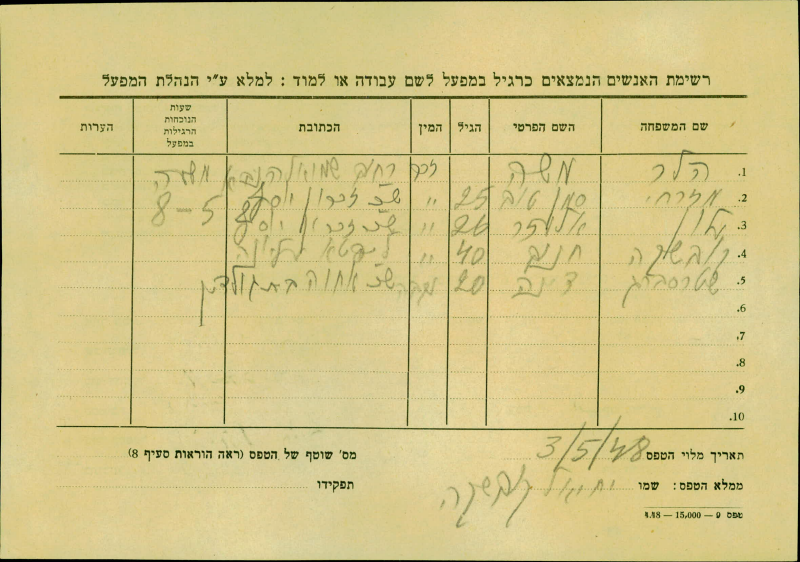 רשימת האנשים הנמצאים כרגיל במפעל לשם עבודה או למוד : למלא ע״י הנהלת המפעל
שם המשפחה השם הפרטי הגיל המין הכתובת שעות הנוכחות הרגילות במפעל הערות
1. הלר משה זכר
2. מזרחי סמן טוב 25 ״ שכ׳ זכרון יוסף 8 – 5
3. אליעזר 26 ״ שכ׳ זכרון יוסף
4. קובשקה חנום 40 ״ ליפטא
5. שטרסברג צינה 20 נקבה שכ׳ אחוה
6.
7.
8.
9.
10.
תאריך מלוי הטפס 3/5/48 מס׳ שוטף של הטפס (ראה הוראות סעיף 8)
ממלא הטפס: שמו קובשקה תפקידו
טפס 9 — 15,000 — 4.48